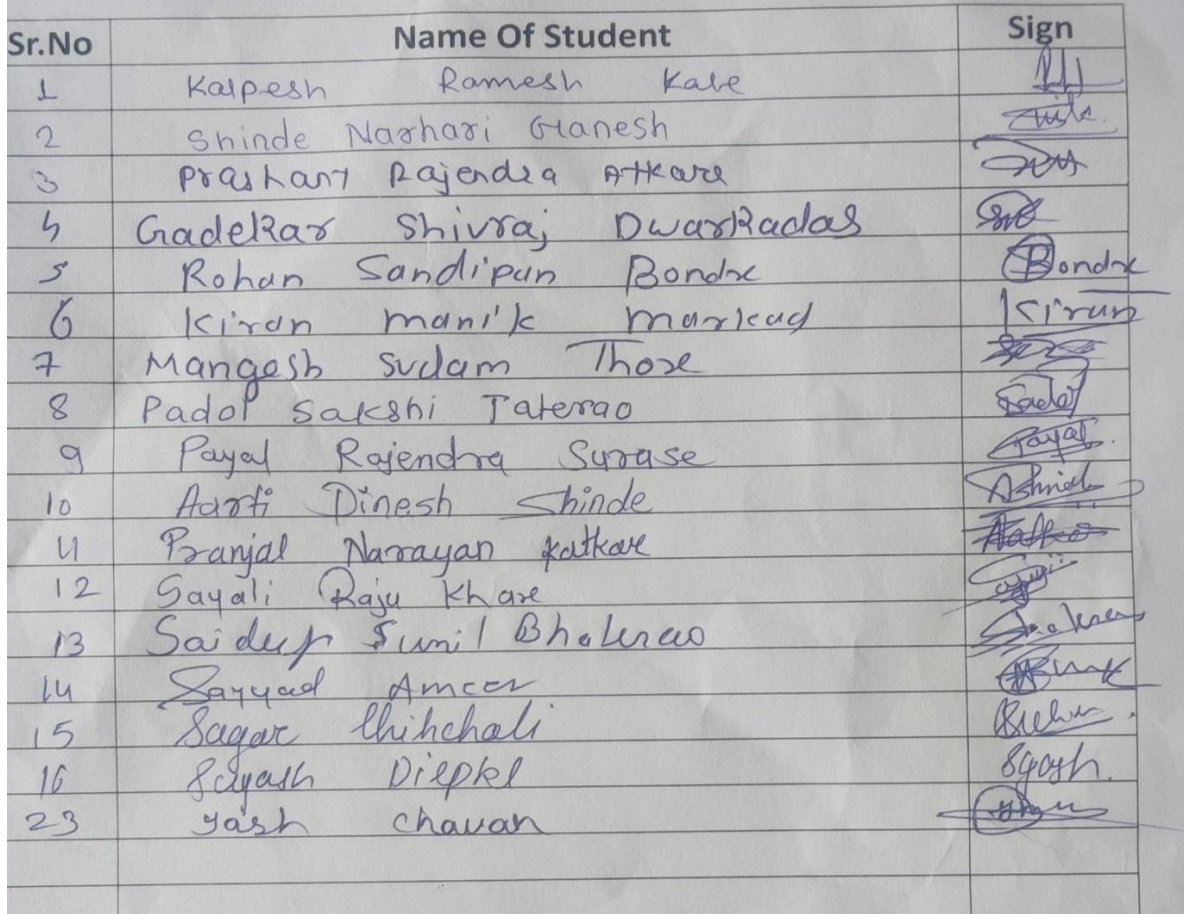 Sr.No Name Of Student Sign
1 Kalpesh Ramesh Kale
2 Shinde Narhari Ganesh
3 Prashant Rajendra Atkare
4 Gadekar Shivraj Dwarkadas
5 Rohan Sandipan Bondre Bondre
6 Kiran manik markad Kiran
7 Mangesh Sudam Thore
8 Padol Sakshi Taterao Padol
9 Payal Rajendra Surase Payal
10 Aarti Dinesh Shinde Ashinde
11 Pranjal Narayan Katkare
12 Sayali Raju Khare
13 Saidup Sunil Bhalerao
14 Sayyad Ameer
15 Sagar Chihchali
16 Suyash
23 Yash Chavan